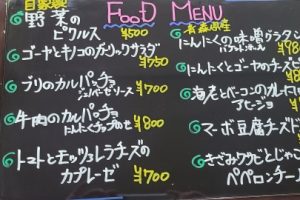 自家製
FOOD MENU
野菜の
ピクルス ¥500
ゴーヤとキノコのガーリックサラダ
¥750
ブリのカルパッチョ
ジェノベーゼソース ¥700
牛肉のカルパッチョ
にんにくチップのせ ¥800
トマトとモッツェレラチーズの
カプレーゼ ¥700
青森県産
にんにくの味噌グラタン
¥98
にんにくとゴーヤのチーズピ
海老とベーコンの
アヒージョ
マーボ豆腐チーズド
きざみワサビとじゃこ
ペペロンチー